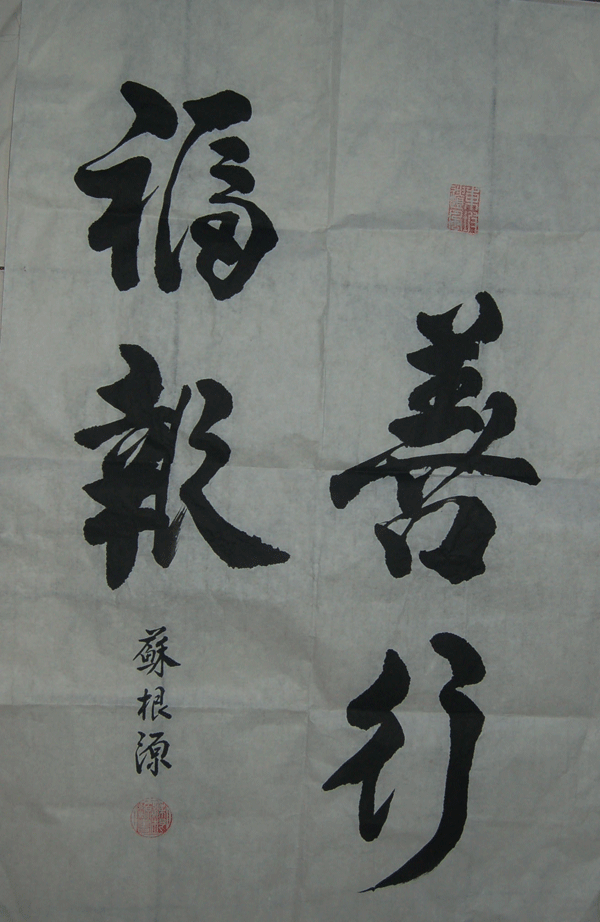 善行
福報
蘇根源